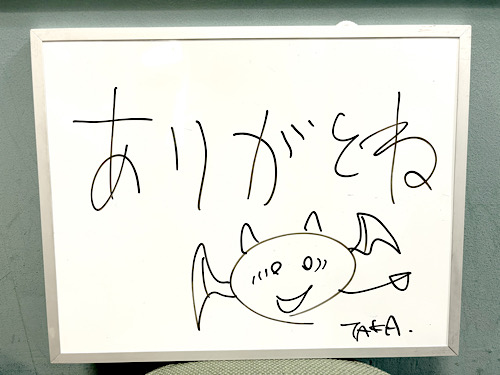 ありがとね
TAKA.